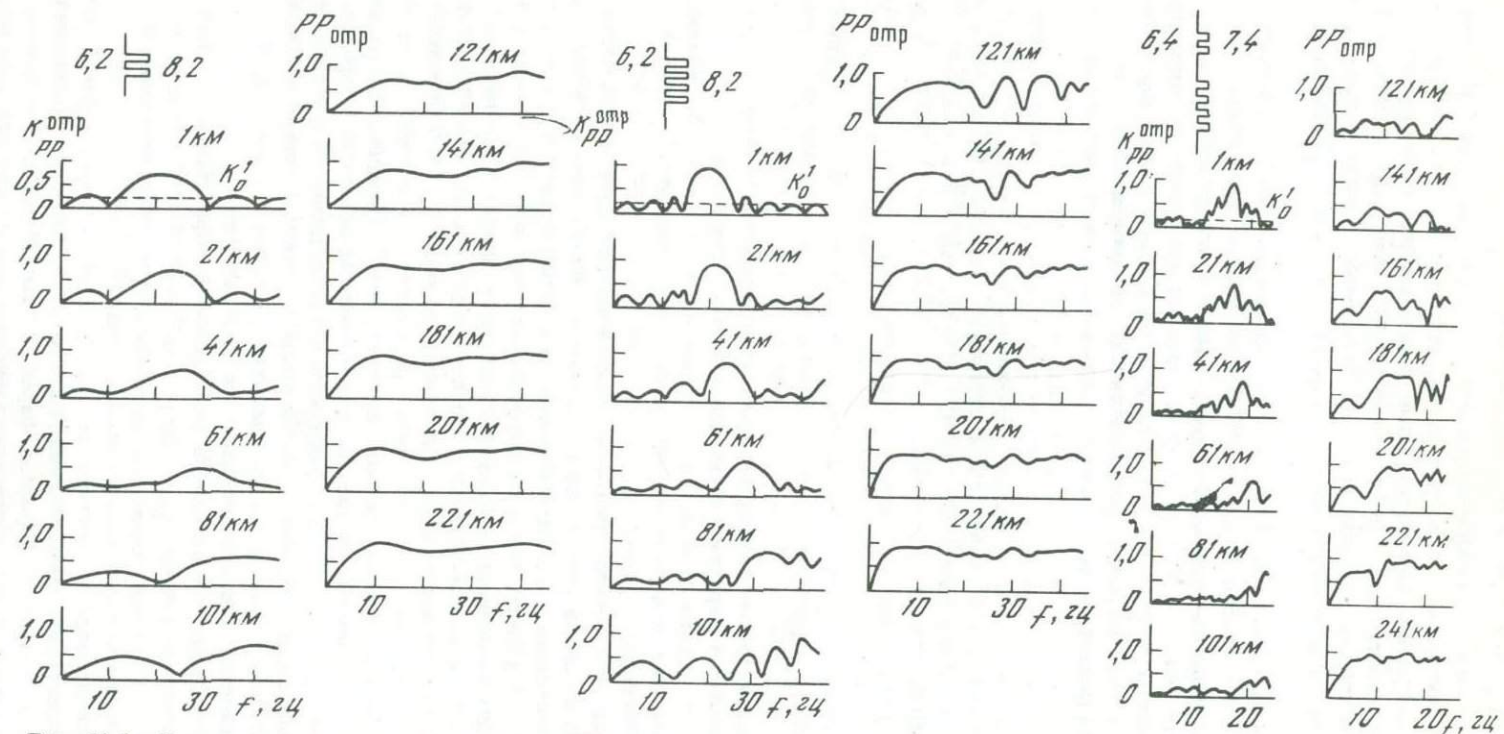 6,2 8,2
K отр PP
1км
K¹₀
0,5
0
21км
1,0
0
41км
1,0
0
61км
1,0
0
81км
1,0
0
101км
1,0
0
10 30 f, гц
PP отр
121км
1,0
0
141км
161км
181км
201км
221км
10 30 f, гц
6,2 8,2
K отр PP
1км
K¹₀
21км
41км
61км
81км
101км
1,0
0
10 30 f, гц
PP отр
121км
1,0
0
141км
161км
181км
201км
221км
10 30 f, гц
6,4 7,4
K отр PP
1км
1,0
K¹₀
0
21км
1,0
0
41км
1,0
0
61км
1,0
0
81км
1,0
0
101км
1,0
0
10 20
PP отр
121км
1,0
0
141км
161км
181км
201км
221км
241км
10 20 f, гц